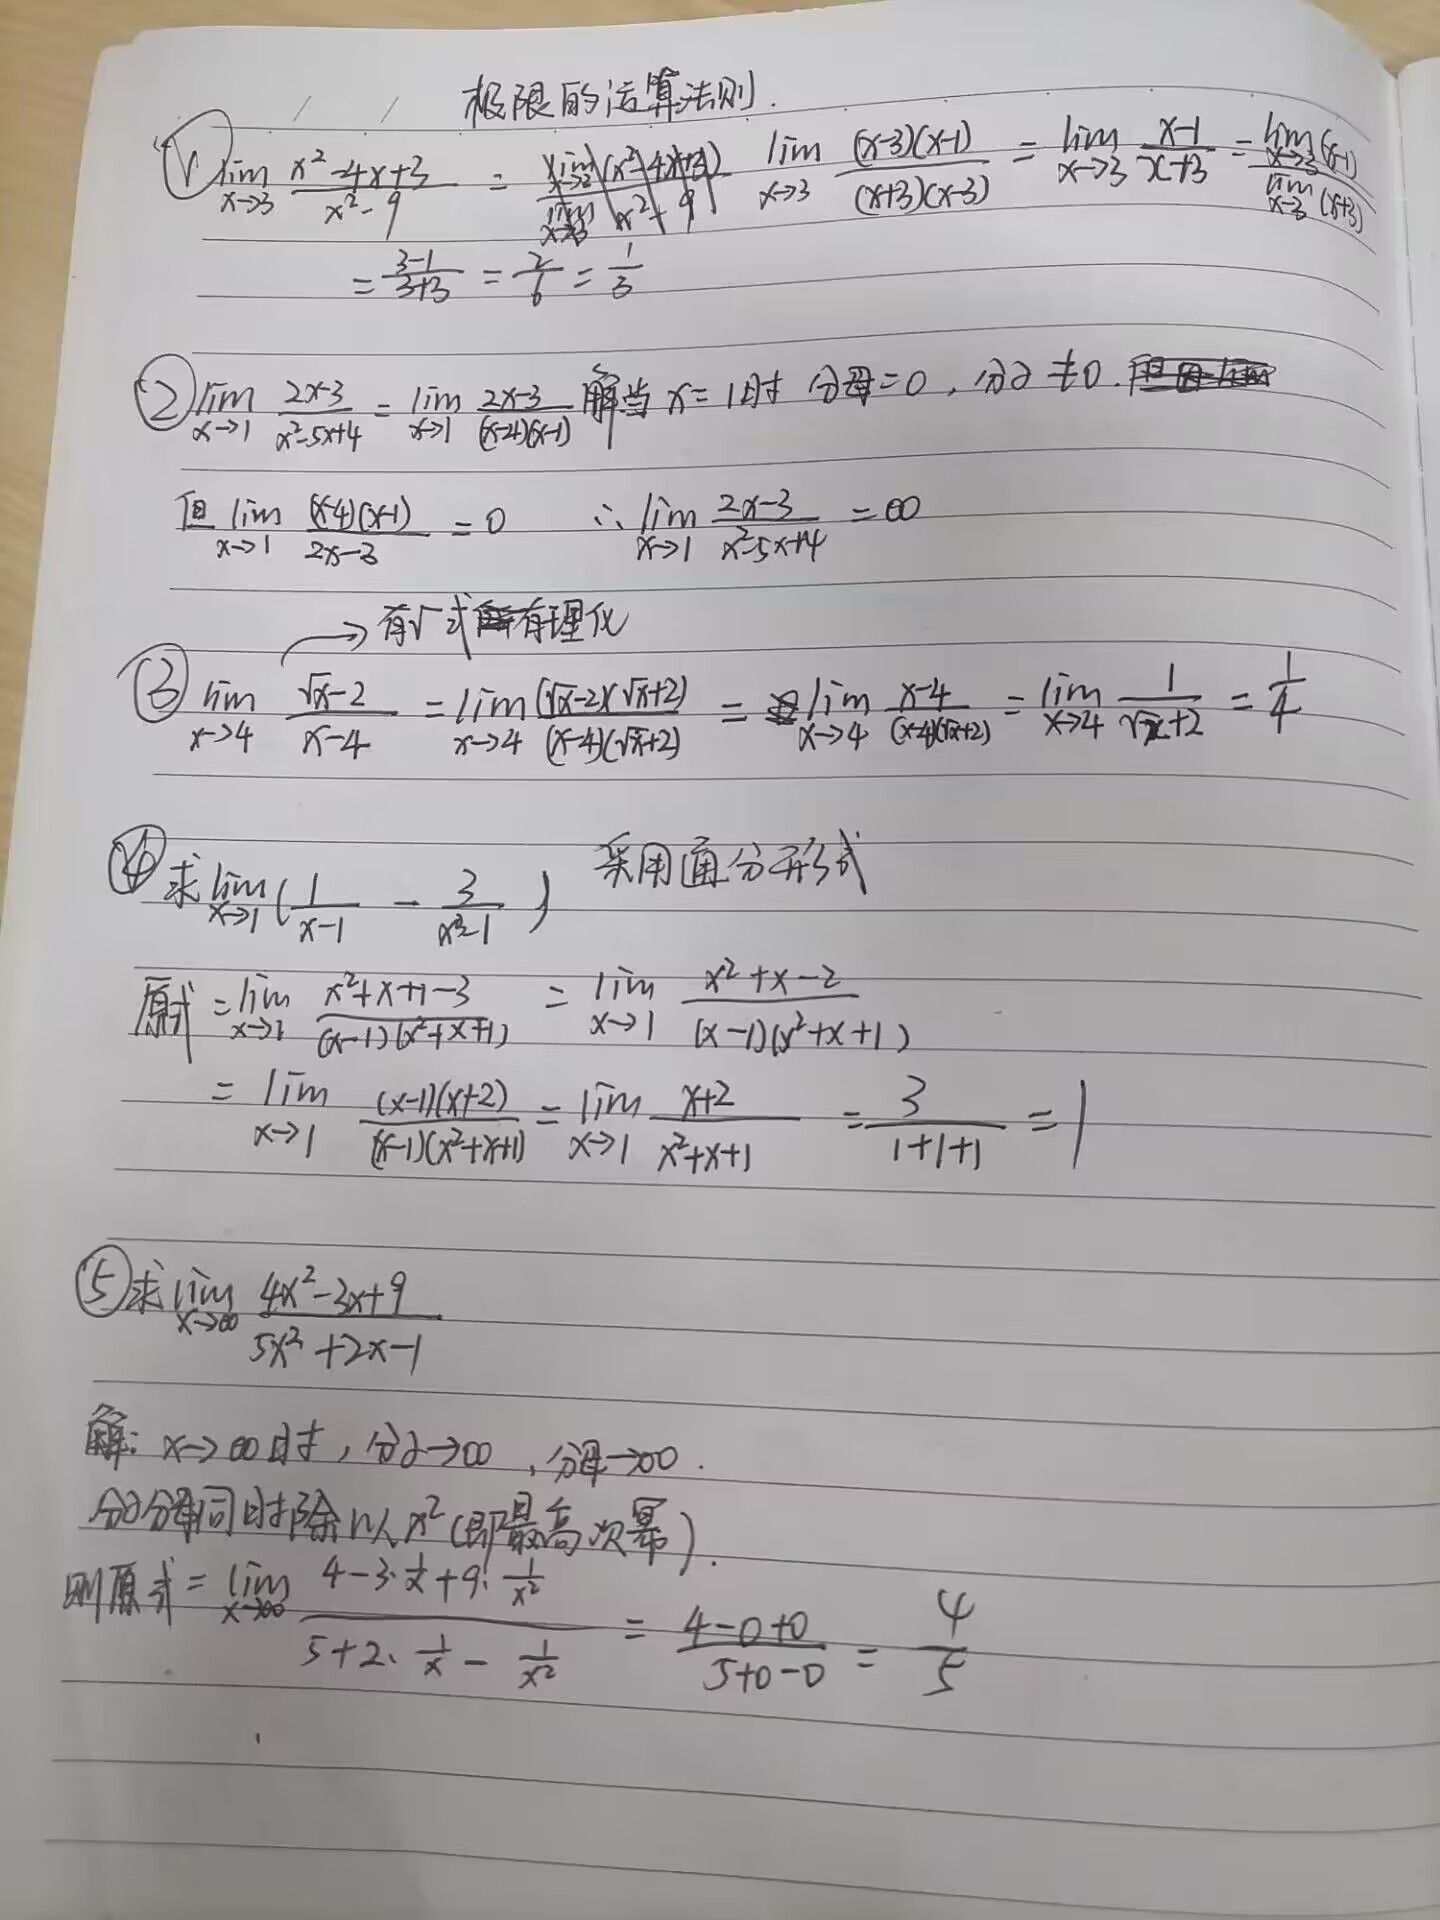 极限的运算法则.
① lim x→3 (x²-4x+3)/(x²-9) = lim x→3 (x-3)(x-1)/(x+3)(x-3) = lim x→3 (x-1)/(x+3) = lim x→3 (x-1) / lim x→3 (x+3)
= (3-1)/(3+3) = 2/6 = 1/3
② lim x→1 (2x-3)/(x²-5x+4) = lim x→1 (2x-3)/(x-4)(x-1) 解当 x=1时 分母=0,分子≠0.
但 lim x→1 (x-4)(x-1)/(2x-3) = 0 ∴ lim x→1 (2x-3)/(x²-5x+4) = ∞
→有√式有理化
③ lim x→4 (√x-2)/(x-4) = lim x→4 (√x-2)(√x+2)/(x-4)(√x+2) = lim x→4 (x-4)/(x-4)(√x+2) = lim x→4 1/(√x+2) = 1/4
④ 求 lim x→1 (1/(x-1) - 3/(x³-1)) 采用通分形式
原式 = lim x→1 (x²+x+1-3)/(x-1)(x²+x+1) = lim x→1 (x²+x-2)/(x-1)(x²+x+1)
= lim x→1 (x-1)(x+2)/(x-1)(x²+x+1) = lim x→1 (x+2)/(x²+x+1) = 3/(1+1+1) = 1
⑤ 求 lim x→∞ (4x²-3x+9)/(5x²+2x-1)
解: x→∞时,分子→∞,分母→∞.
分子分母同时除以x²(即最高次幂).
则原式 = lim x→∞ (4-3·1/x+9·1/x²)/(5+2·1/x-1/x²) = (4-0+0)/(5+0-0) = 4/5